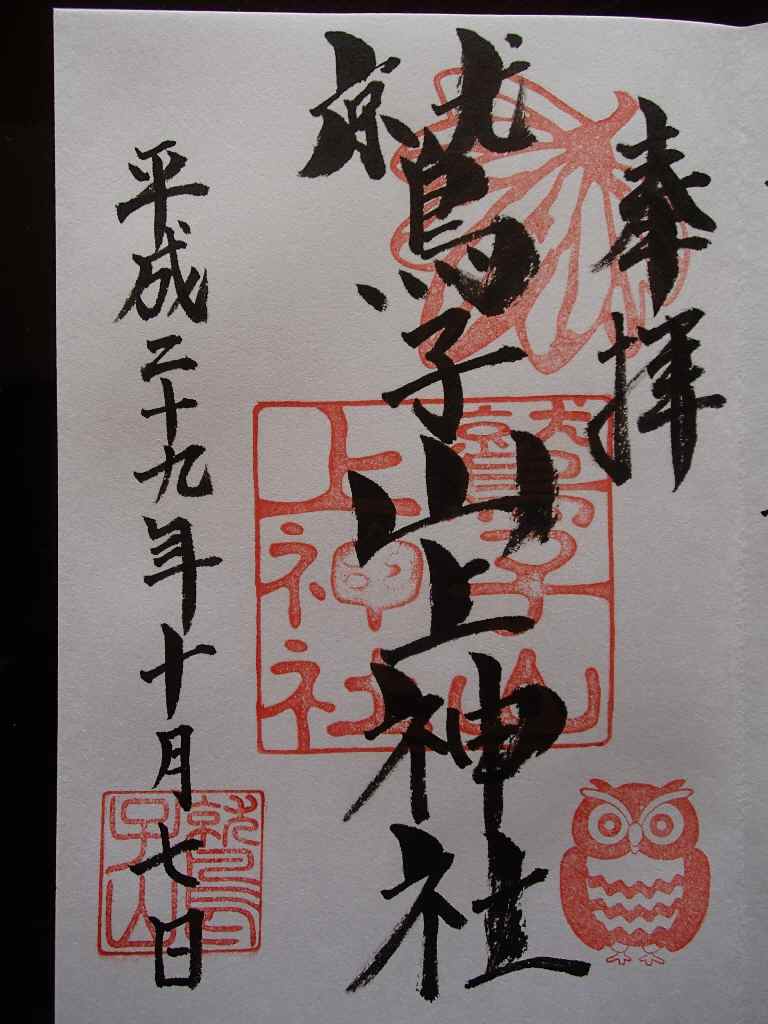 奉拝
鷲子山上神社
平成二十九年十月七日
鷲子山
上神社
鷲
子山